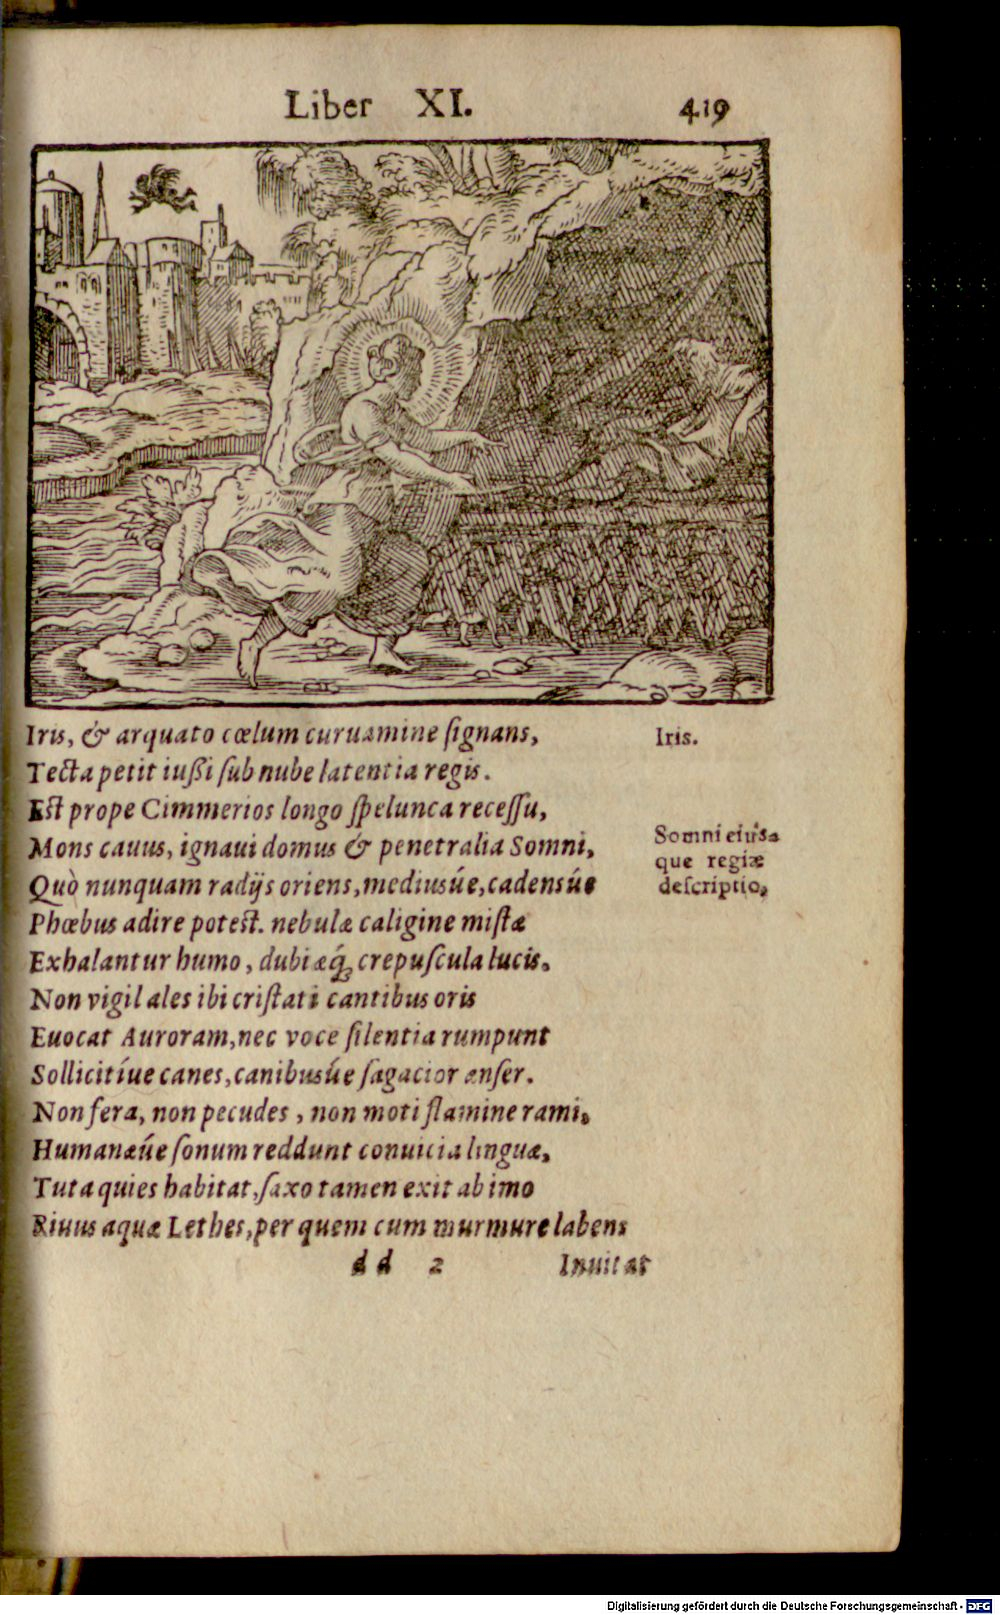 Liber XI. 419
Iris, & arquato cœlum curuamine ſignans,
Iris.
Tecta petit iußi ſub nube latentia regis.
Eſt prope Cimmerios longo ſpelunca receſſu,
Mons cauus, ignaui domus & penetralia Somni,
Somni eiuſ⸗
que regiæ
deſcriptio,
Quò nunquam radijs oriens, mediusúe, cadensúe
Phœbus adire poteſt. nebulæ caligine miſtæ
Exhalantur humo, dubiæq́ꝫ crepuſcula lucis.
Non vigil ales ibi criſtati cantibus oris
Euocat Auroram, nec voce ſilentia rumpunt
Sollicitíue canes, canibusúe ſagacior anſer.
Non fera, non pecudes, non moti flamine rami,
Humanæúe ſonum reddunt conuicia linguæ,
Tuta quies habitat, ſaxo tamen exit ab imo
Riuus aquæ Lethes, per quem cum murmure labens
dd 2 Inuitat
Digitalisierung gefördert durch die Deutsche Forschungsgemeinschaft - DFG